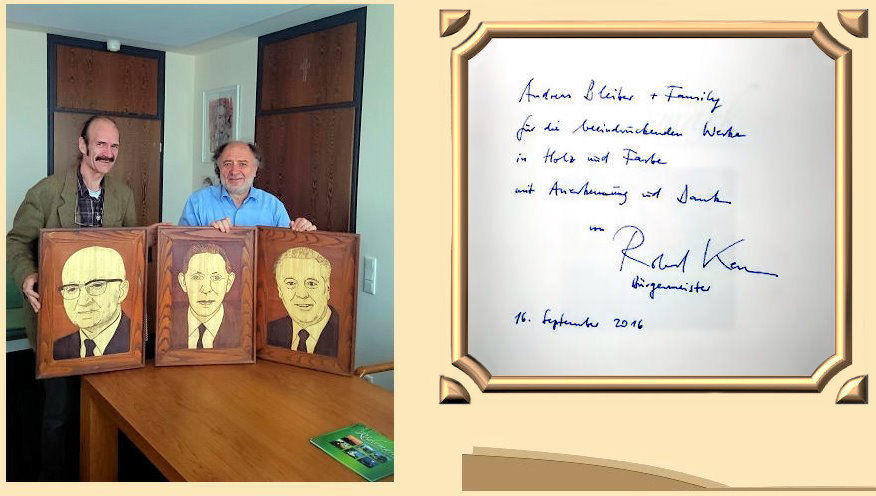 Andreas Bleiber + Family
für die beeindruckenden Werke
in Holz und Farbe
mit Anerkennung und Dank
von
Robert
Bürgermeister
16. September 2016